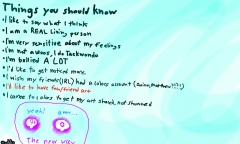 Things you should know
•I like to say what I think
•I am a REAL living person
•I'm very sensitive about my feelings
•I'm not autism, I do Taekwondo
•I'm bullied A LOT
•I'd like to get noticed more
•I wish my friends (IRL) had a colors account
•I'd like to have fan/friend art
•I came to colors to get my art stuck, not shamed
yeah!
The new way